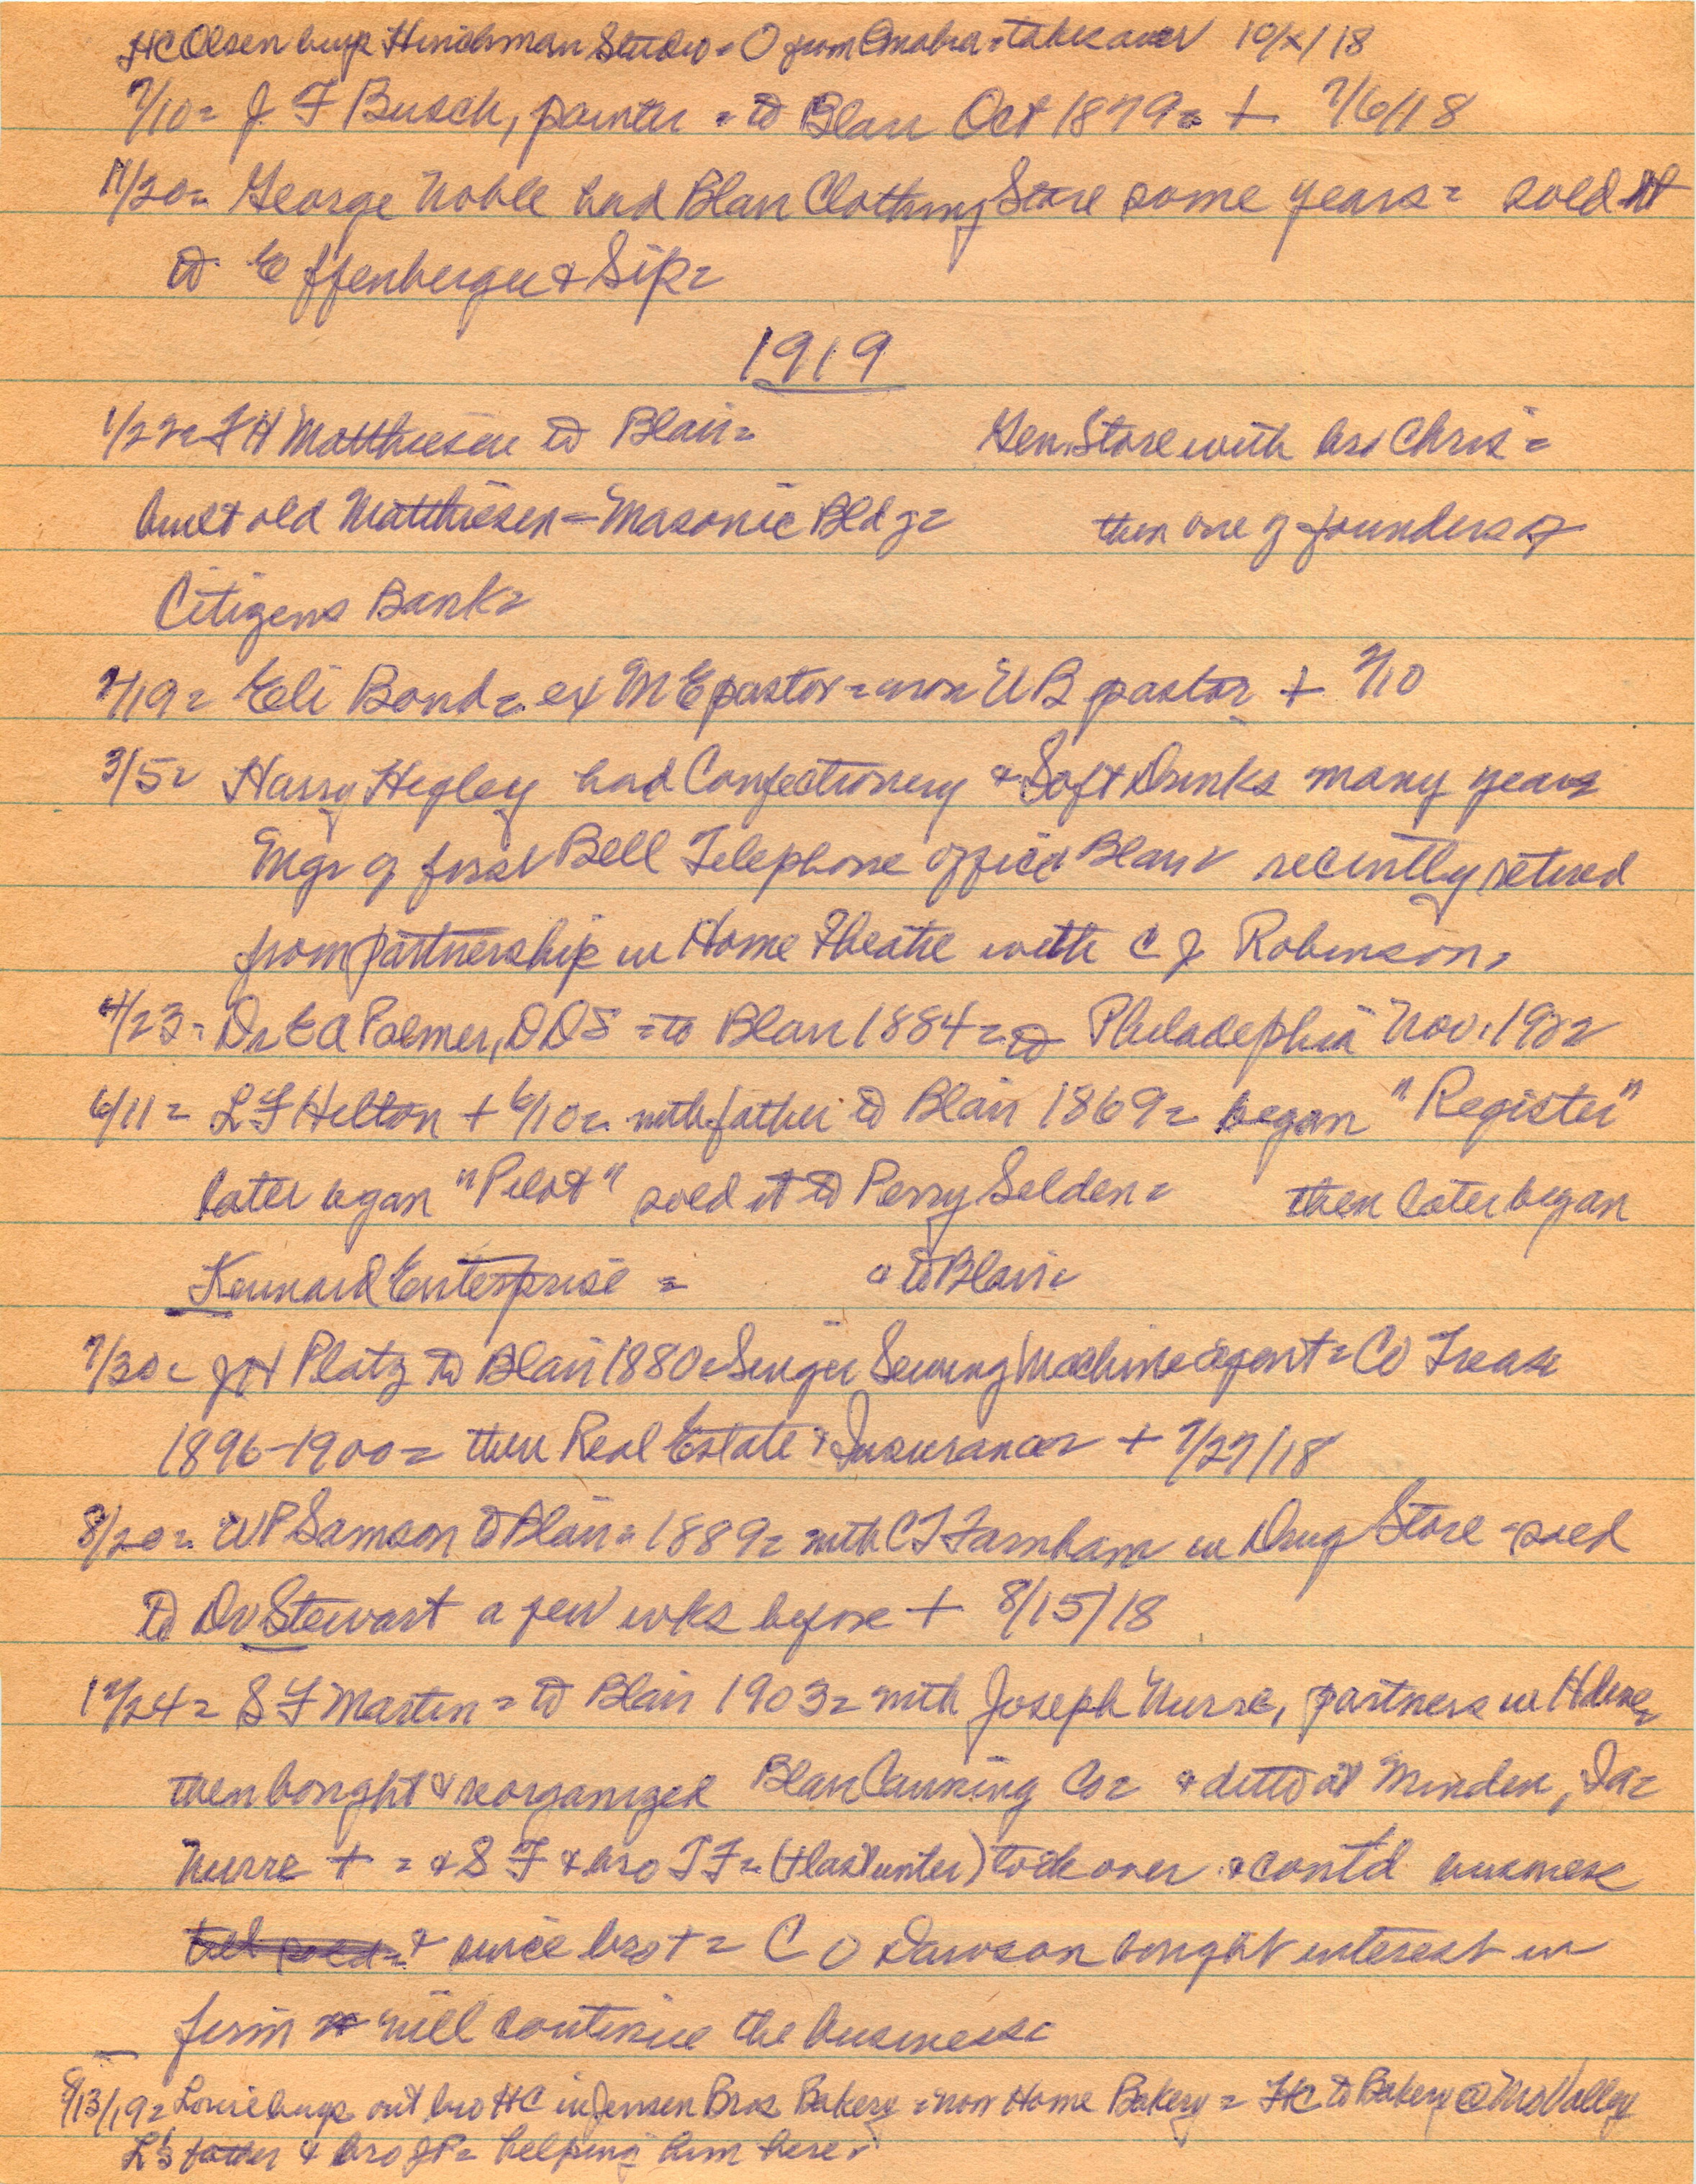 HC Olsen buys Hinchman Studio = O from Omaha = takes over 10/x/18
7/10 = J F Busch, painter = to Blair Oct 1879 = + 7/6/18
11/20 = George Noble had Blair Clothing Store some years = sold it
to Effenberger & Sip =
1919
1/22 = F H Matthiesen to Blair = Gen. Store with bro Chris =
built old Matthiesen - Masonic Bldg = then one of founders of
Citizens Bank =
2/19 = Eli Bond = ex M E pastor = now U B pastor + 2/10
3/5 = Harry Hegley had Confectionery & Soft Drinks many years
Mgr of first Bell Telephone office Blair recently retired
from partnership in Home Theatre with C J Robinson.
4/23 = Dr E A Palmer, DDS = to Blair 1884 = to Philadelphia Nov. 1922
6/11 = L F Hilton + 6/10 = with father to Blair 1869 = began "Register"
later began "Pilot" sold it to Perry Selden = then later began
Kennard Enterprise = " to Blair =
7/30 = J H Platz to Blair 1880 = Singer Sewing Machine agent = Co Treas
1896-1900 = then Real Estate & Insurance + 7/27/18
8/20 = W P Samson to Blair = 1889 = with C T Farnham in Drug Store = sold
to Dr Stewart a few wks before + 8/15/18
12/24 = S F Martin = to Blair 1903 = with Joseph Nurre, partners in Hdwe
then bought & reorganized Blair Canning Co = & ditto at Minden, Ia =
Nurre + = & S F & bro T F = (+ last winter) took over & cont'd business
& since bro + = C O Dawson bought interest in
firm will continue the business
8/13/19 = Louie buys out bro HC in Jensen Bros Bakery = now Home Bakery = HC to Bakery @ Mo Valley
L's father & bro J P = helping him here.